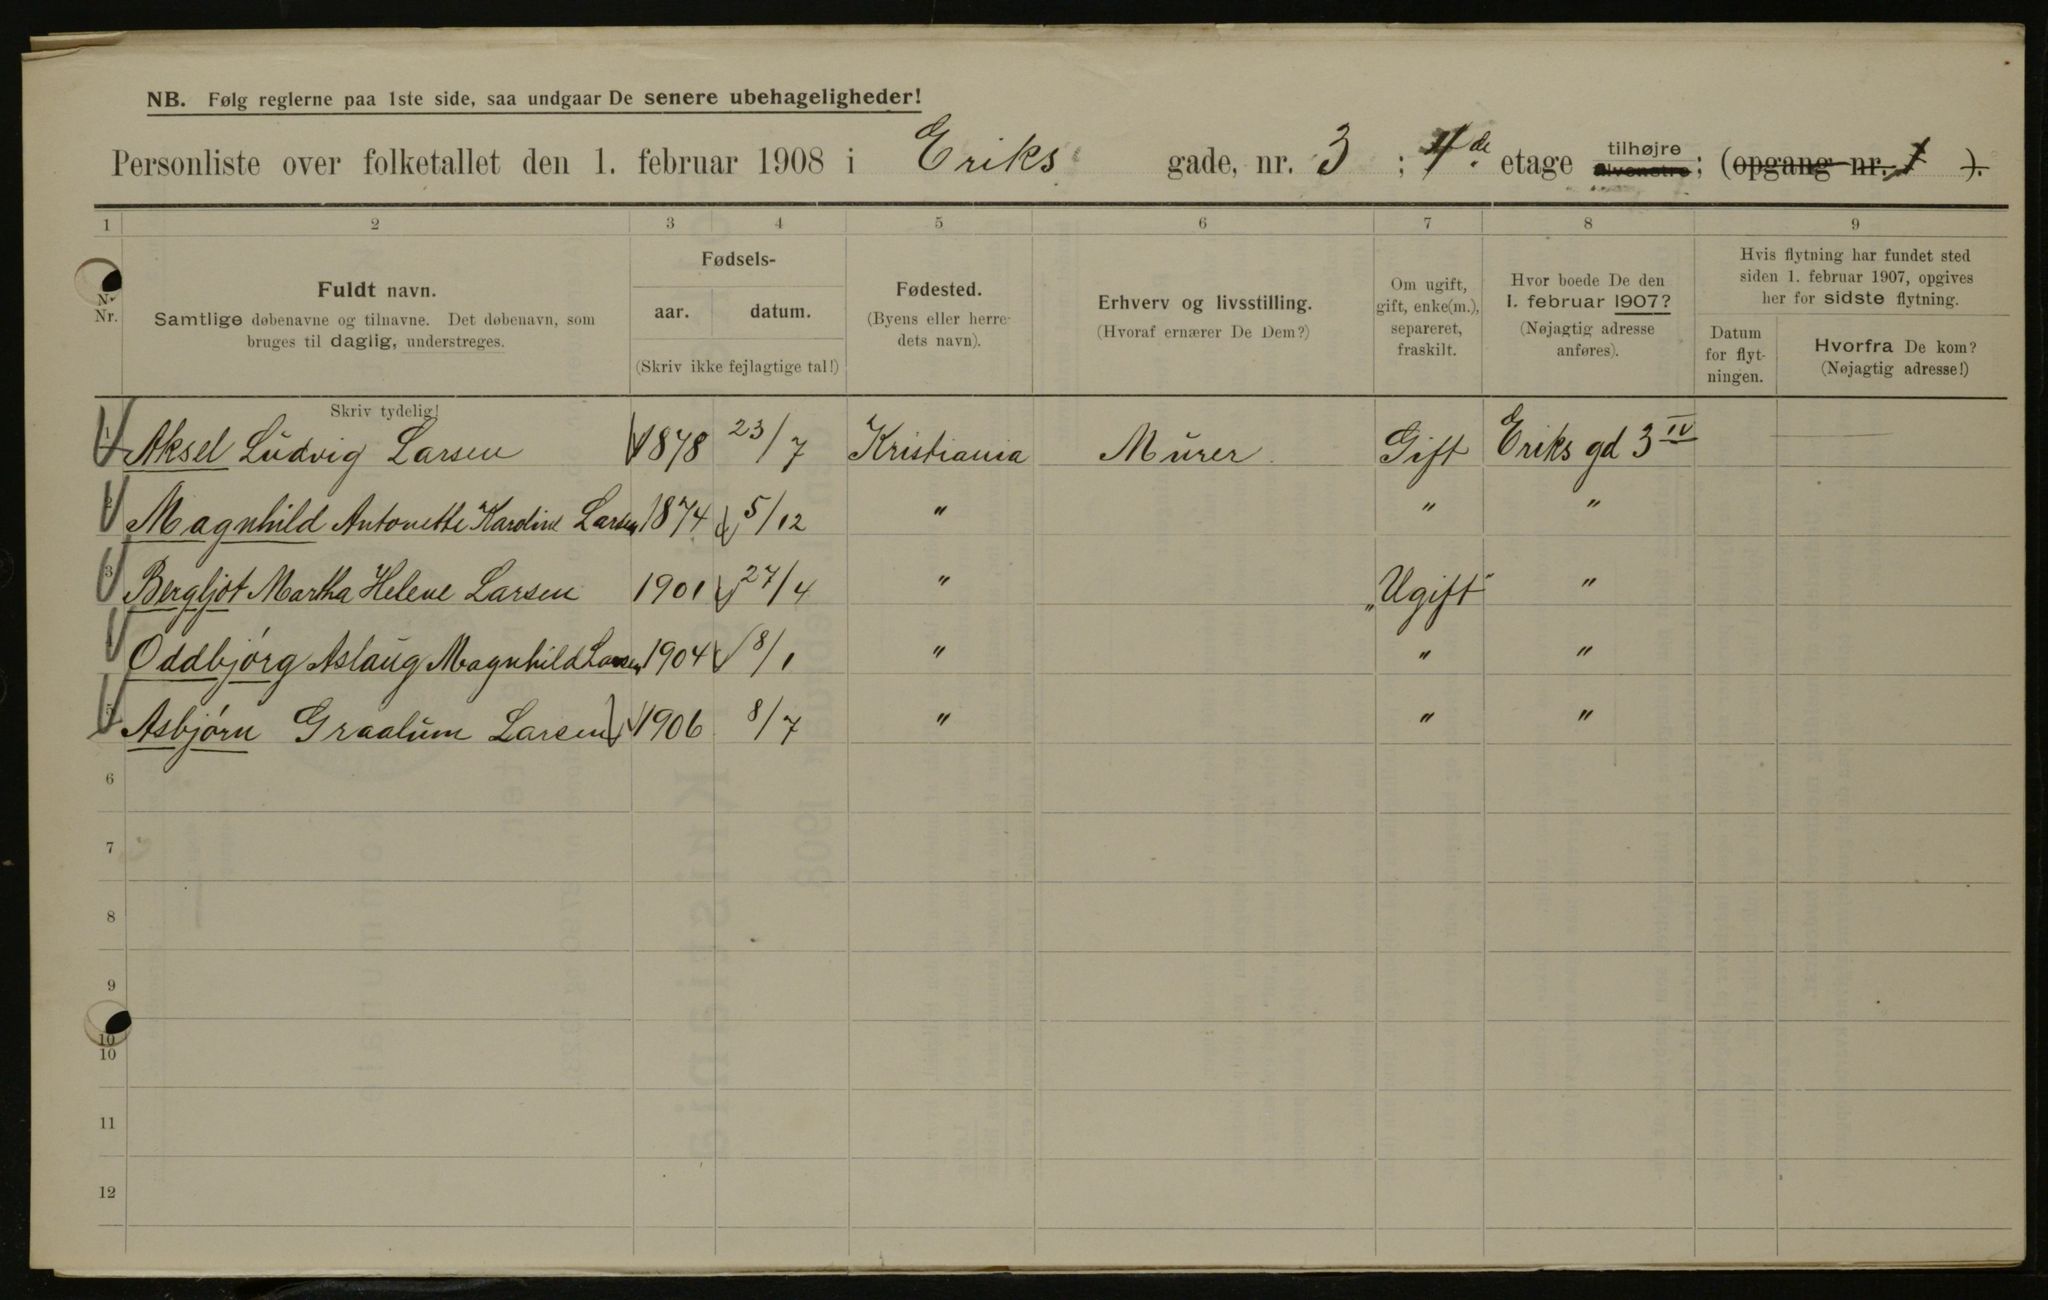 NB. Følg reglerne paa 1ste side, saa undgaar De senere ubehageligheder!
Personliste over folketallet den 1. februar 1908 i Eriks gade, nr. 3 ; 4de etage tilhøjre tilvenstre; (opgang nr. 1 ).
1 2 3 4 5 6 7 8 9
Nr.
Fuldt navn.
Samtlige døbenavne og tilnavne. Det døbenavn, som
bruges til daglig, understreges.
Skriv tydelig!
Fødsels-
aar. datum.
(Skriv ikke fejlagtige tal!)
Fødested.
(Byens eller herre-
dets navn).
Erhverv og livsstilling.
(Hvoraf ernærer De Dem?)
Om ugift,
gift, enke(m.),
separeret,
fraskilt.
Hvor boede De den
1. februar 1907?
(Nøjagtig adresse
anføres).
Hvis flytning har fundet sted
siden 1. februar 1907, opgives
her for sidste flytning.
Datum
for flyt-
ningen.
Hvorfra De kom?
(Nøjagtig adresse!)
1 Aksel Ludvig Larsen 1878 23/7 Kristiania Murer Gift Eriks gd 3 IV
2 Magnhild Antonette Karoline Larsen 1874 5/12 " " "
3 Bergljot Martha Helene Larsen 1901 27/4 " "Ugift" "
4 Oddbjørg Aslaug Magnhild Larsen 1904 8/1 " " "
5 Asbjørn Graalum Larsen 1906 8/7 " " "
6
7
8
9
10
10
11
12